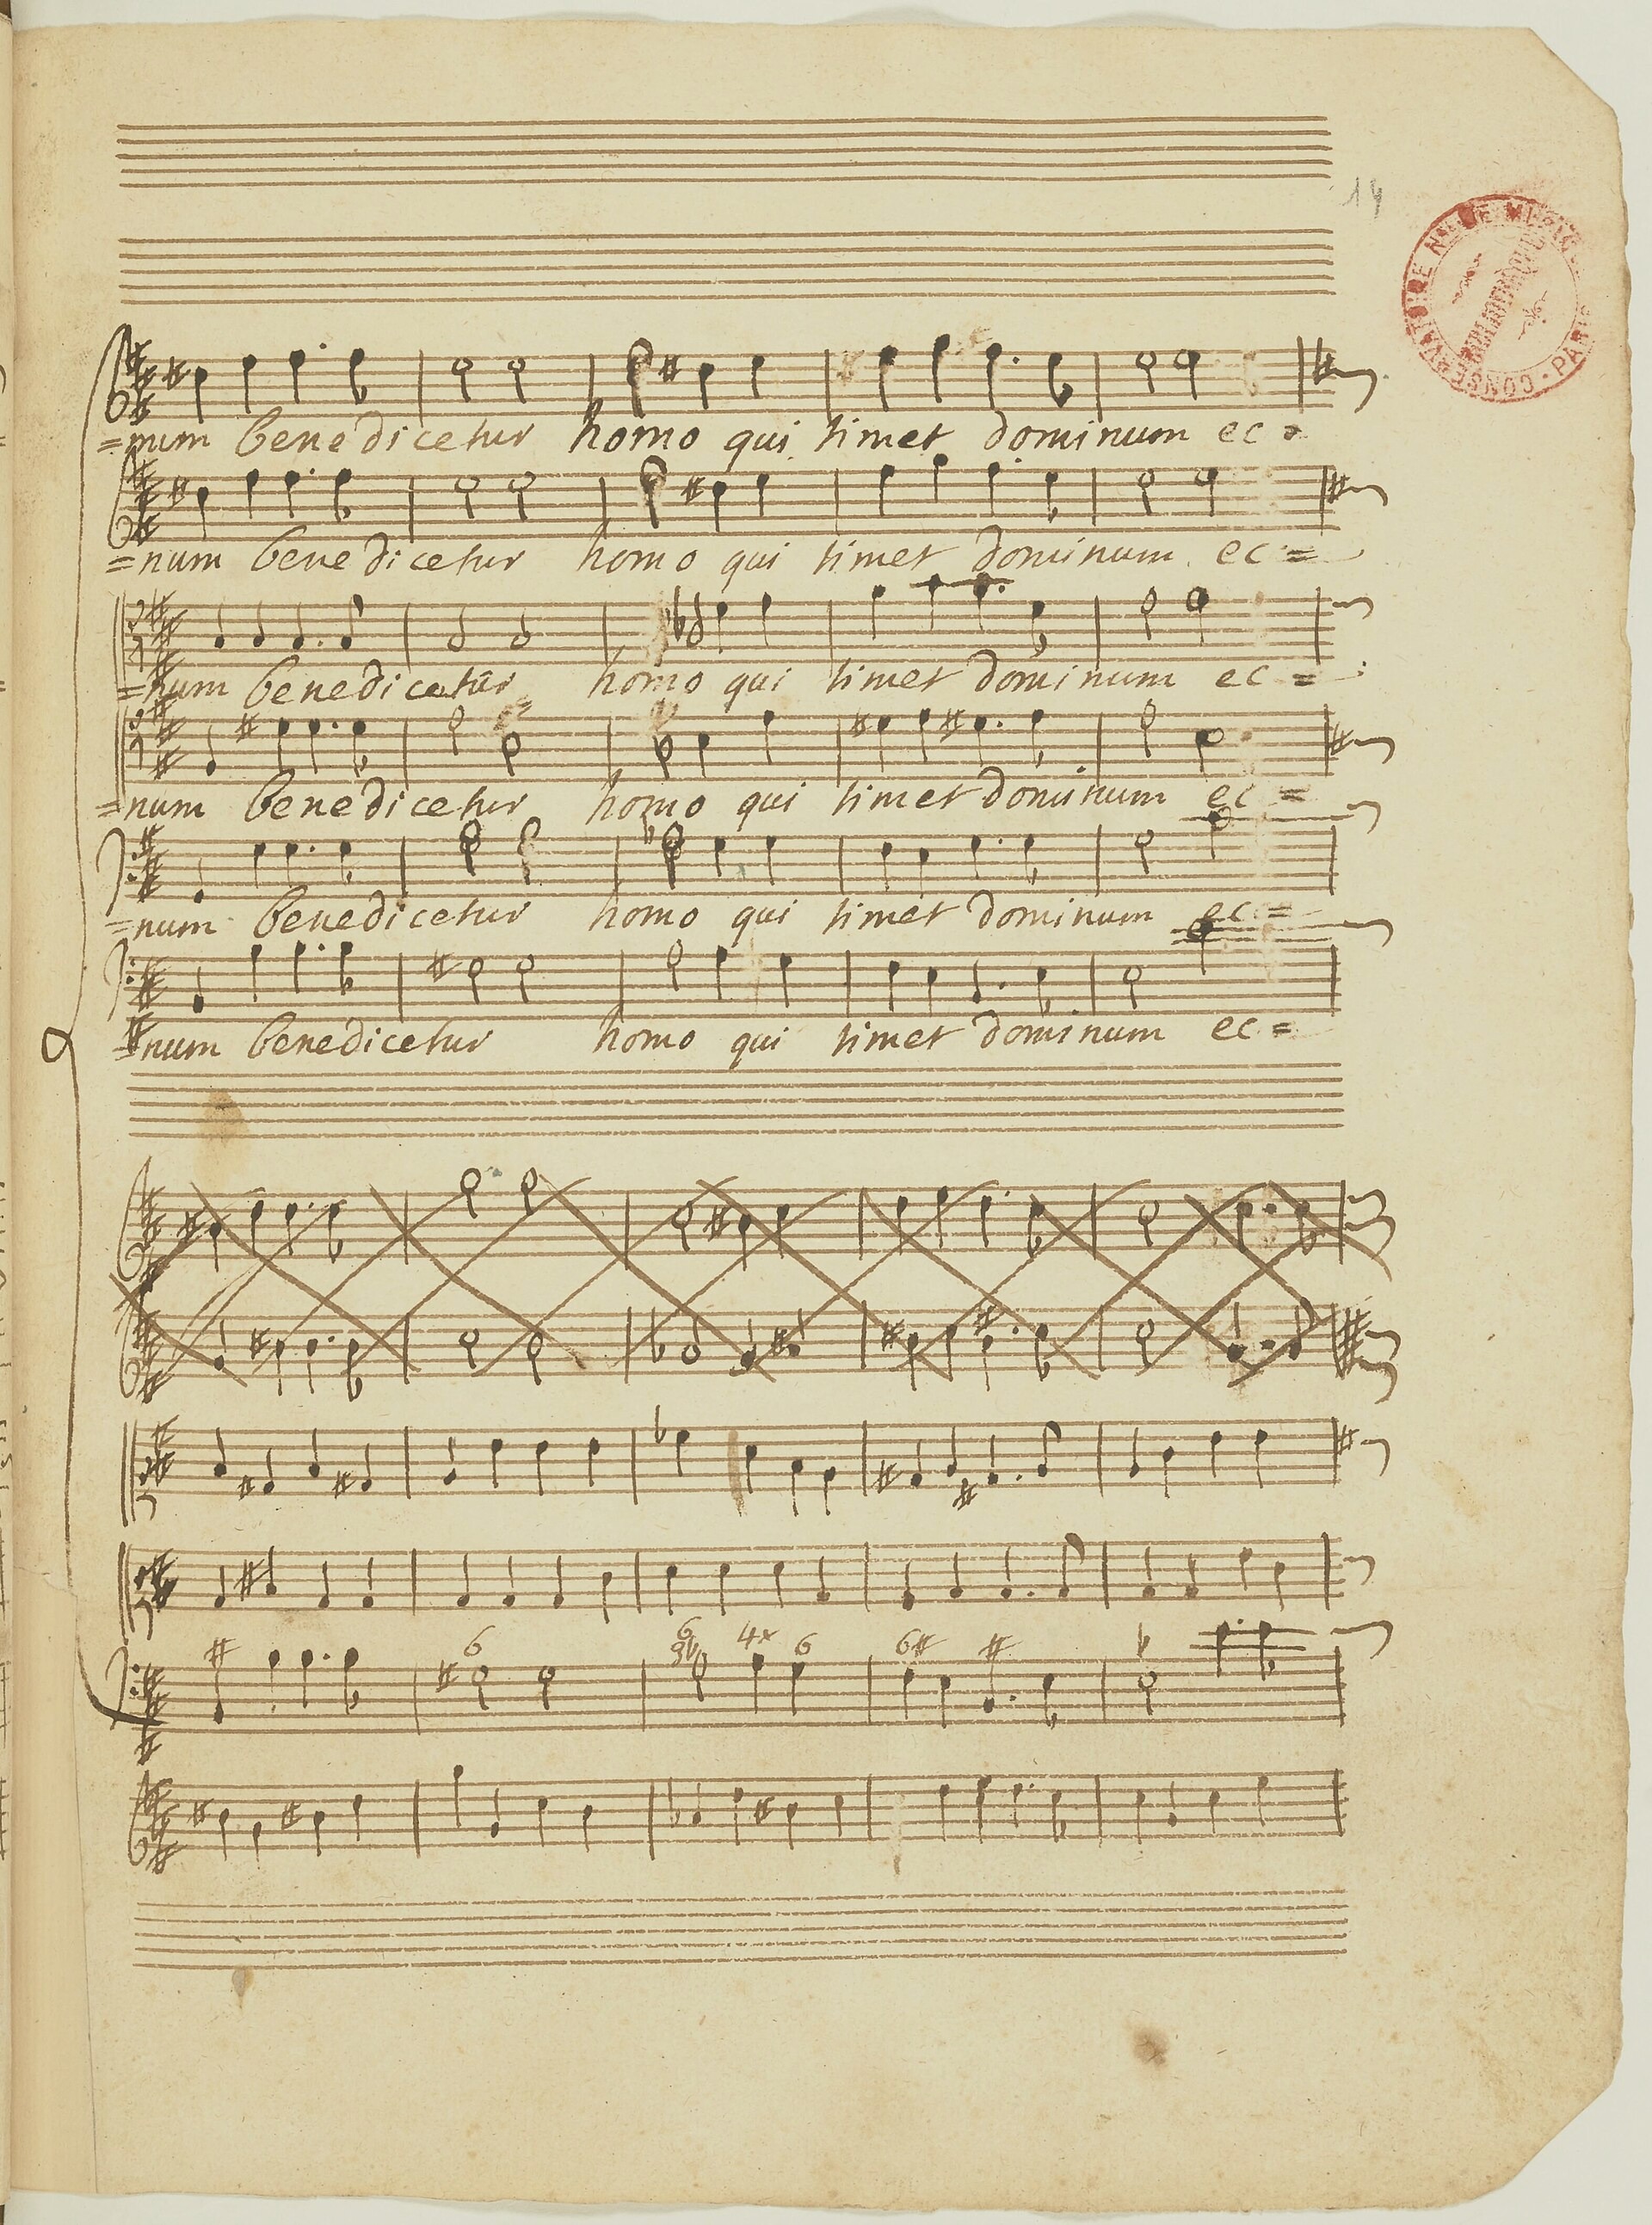 14
CONSERVATOIRE NALE
=num benedicetur homo qui timet dominum ec=
=num benedicetur homo qui timet dominum ec=
=num benedicetur homo qui timet dominum ec=
=num benedicetur homo qui timet dominum ec=
=num benedicetur homo qui timet dominum ec=
=num benedicetur homo qui timet dominum ec=
6 6 4x 6 6#